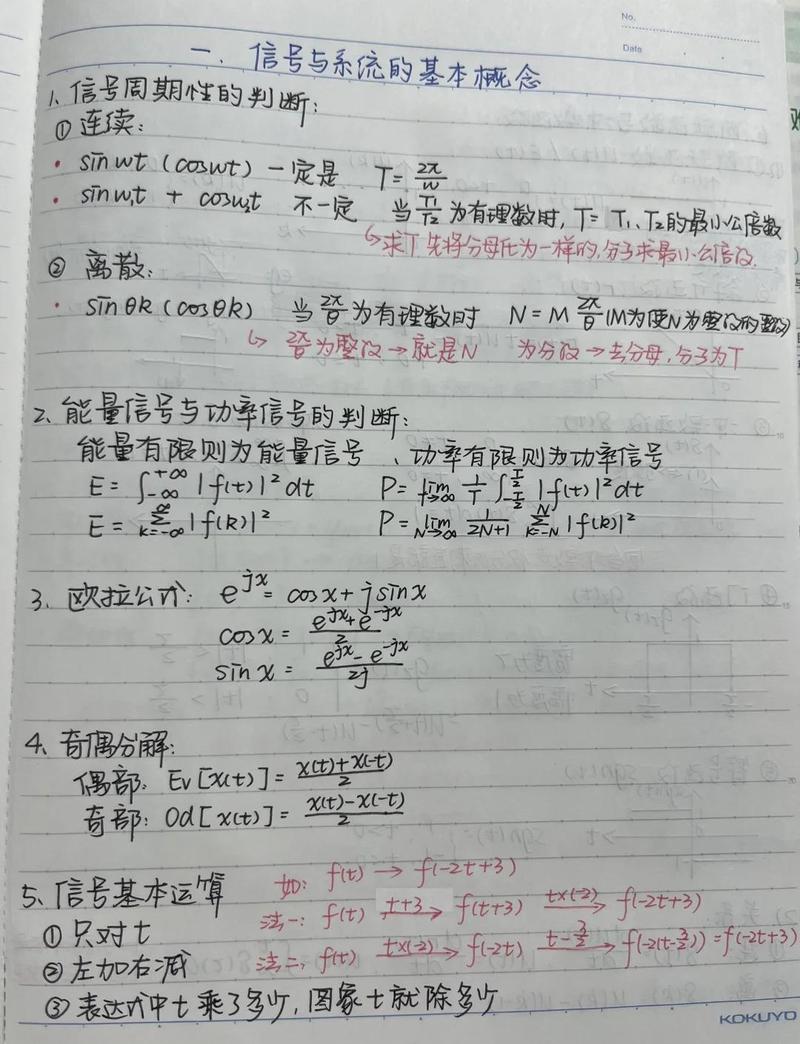 No.
Date
一. 信号与系统的基本概念
1、信号周期性的判断:
① 连续:
· sinwt (coswt) 一定是 T= 2π/w
· sinw₁t + cosw₂t 不一定 当 T1/T2 为有理数时, T= T1、T2的最小公倍数
↳求T先将分母化为一样的,分子求最小公倍数.
② 离散:
· sinθk (cosθk) 当 2π/θ 为有理数时 N = M 2π/θ (M为使N为整数的整数)
↳ 2π/θ 为整数→就是N 为分数→去分母,分子为T
2、能量信号与功率信号的判断:
能量有限则为能量信号 、功率有限则为功率信号
E = ∫_{-∞}^{+∞} |f(t)|² dt P = lim_{T→∞} 1/T ∫_{-T/2}^{T/2} |f(t)|² dt
E = Σ_{k=-∞}^{∞} |f(k)|² P = lim_{N→∞} 1/(2N+1) Σ_{k=-N}^{N} |f(k)|²
3、欧拉公式: e^{jx} = cosx + jsinx
cosx = (e^{jx}+e^{-jx})/2
sinx = (e^{jx}-e^{-jx})/2j
4、奇偶分解:
偶部: Ev[x(t)] = (x(t)+x(-t))/2
奇部: Od[x(t)] = (x(t)-x(-t))/2
5、信号基本运算 如: f(t) → f(-2t+3)
① 只对t 法一: f(t) —t+3→ f(t+3) —t×(-2)→ f(-2t+3)
② 左加右减 法二: f(t) —t×(-2)→ f(-2t) —t-3/2→ f(-2(t-3/2)) = f(-2t+3)
③ 表达式中t乘了多少, 图象t就除多少
KOKUYO